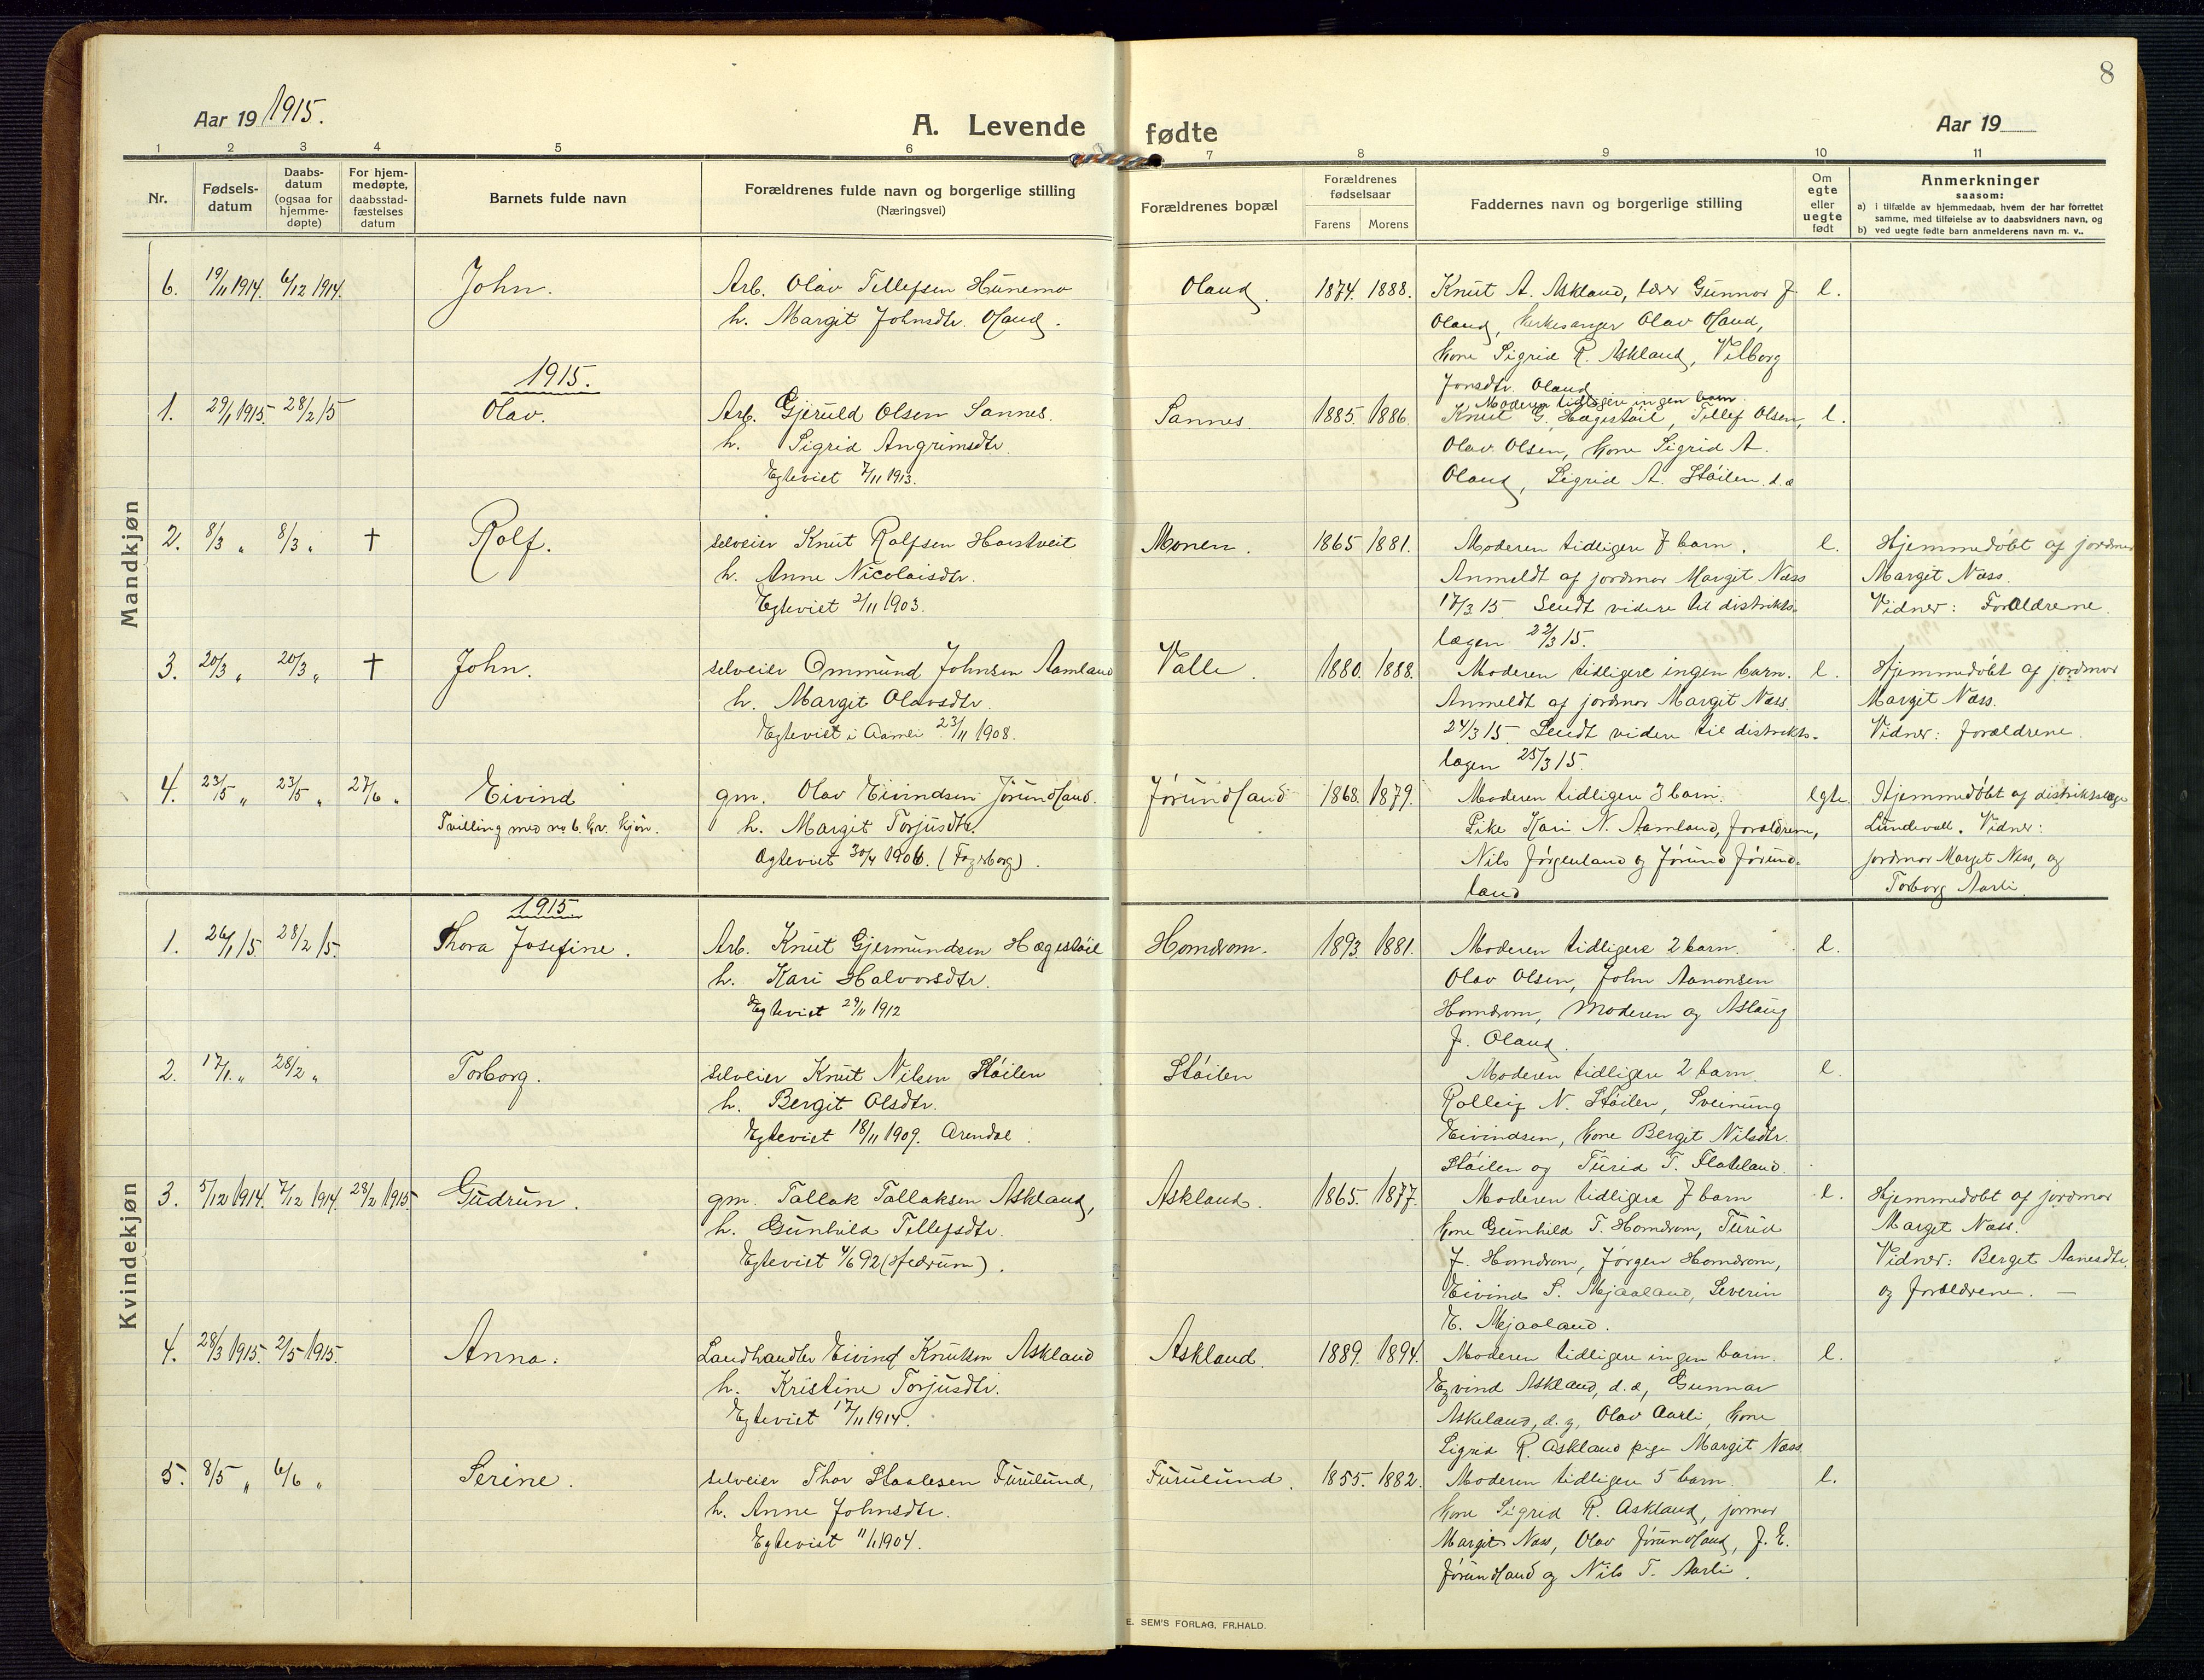 8
Aar 19 1915.
A. Levende fødte
Aar 19
1 2 3 4 5 6 7 8 9 10 11
Nr.
Fødselsdatum
Daabsdatum (ogsaa for hjemmedøpte)
For hjemmedøpte, daabsstadfæstelses datum
Barnets fulde navn
Forældrenes fulde navn og borgerlige stilling
(Næringsvei)
Forældrenes bopæl
Forældrenes fødselsaar
Farens Morens
Faddernes navn og borgerlige stilling
Om egte eller uegte født
Anmerkninger
saasom:
a) i tilfælde av hjemmedaab, hvem der har forrettet
samme, med tilføielse av to daabsvidners navn, og
b) ved uegte fødte barn anmelderens navn m. v..
Mandkjøn
6. 19/11 1914. 6/12 1914. John. Arb. Olav Tellefsen Hunemo Oland. 1874. 1888. Knut A. Askland, lærer Gunnar J. e.
h. Margit Johnsdtr. Oland. Oland, kirkesanger Olav Oland,
kone Sigrid R. Askland, Vilborg
Jonsdtr. Oland
1915.
Moderen tidligere ingen barn.
1. 29/1 1915. 28/2 15 Olav. Arb. Gjeruld Olsen Sannes. Sannes. 1885. 1886. Knut G. Hægestøil, Tellef Olsen, e.
h. Sigrid Angrimsdtr. Olav Olsen, kone Sigrid A.
Egteviet 7/11 1913. Oland, Sigrid A. Støilen. d.æ
2. 8/3 „ 8/3 „ † Rolf. selveier Knut Rolfsen Harstveit Monen. 1865 1881. Moderen tidligere 7 barn. e. Hjemmedøbt af jordmor
h. Anne Nicolaisdtr. Anmeldt af jordmor Margit Næss Margit Næss.
Egteviet 2/11 1903. 17/3 15 Sendt videre til distrikts- Vidner: Forældrene.
lægen 22/3 15.
3. 20/3 „ 20/3 „ † John. selveier Ommund Johnsen Aamland Valle. 1880. 1888. Moderen tidligere ingen barn. e. Hjemmedøbt af jordmor
h. Margit Olavsdtr. Anmeldt af jordmor Margit Næss Margit Næss.
Egteviet i Aamli 23/11 1908. 24/3 15. Sendt videre til distrikts- Vidner: forældrene.
lægen 25/3 15.
4. 23/5 „ 23/5 „ 27/6 „ Eivind gm. Olav Eivindsen Jørundland. Jørundland 1868. 1879. Moderen tidligere 3 barn. egte. Hjemmedøbt af distriktslæge
Tvilling med no 6. kv. kjøn. h. Margit Torjusdtr. Pike Kari N. Aamland, forældrene, Lundevall. Vidner:
Ægteviet 30/4 1906. (Fagerborg). Nils Jørgenland og Jørund Jørund- jordmor Marget Ness, og
land Torborg Aarli.
Kvindekjøn
1915.
1. 26/1 15. 28/2 15. Thora Josefine. Arb. Knut Gjermundsen Hægestøil Homdrom. 1893. 1881. Moderen tidligere 2 barn. e.
h. Kari Halvorsdtr. Olav Olsen, John Aanonsen
Egteviet 29/11 1912 Homdrom, Moderen og Aslaug
J. Oland.
2. 17/1. „ 28/2 „ Torborg. selveier Knut Nilsen Støilen Støilen Moderen tidligere 2 barn. e.
h. Bergit Olsdtr. Rolleig N. Støilen, Sveinung
Egteviet 18/11 1909. Arendal. Eivindsen, kone Bergit Nilsdtr.
Støilen og Turid T. Flateland.
3. 5/12 1914. 7/12 1914. 28/2 1915. Gudrun. gm. Tallak Tallaksen Askland, Askland. 1865. 1877. Moderen tidligere 7 barn e. Hjemmedøbt af jordmor
h. Gunhild Tellefsdtr. kone Gunhild T. Homdrom, Turid Marget Næss.
Egteviet 4/6 92 (Hedrum). J. Homdrom, Jørgen Homdrom, Vidner: Berget Aanesdtr.
Eivind S. Mjaaland, Severin og forældrene. —
E. Mjaaland.
4. 28/3 1915. 2/5 1915. Anna. Landhandler Eivind Knutson Askland Askland. 1889. 1894. Moderen tidligere ingen barn. e.
h. Kristine Torjusdtr. Eyvind Askland, d.æ, Gunnar
Egteviet 17/11 1914. Askeland, d.y, Olav Aarli, kone
Sigrid R. Askland pige Margit Næss
5. 8/5 „ 6/6 „ Serine. selveier Thor Staalesen Furulund, Furulund. 1855. 1882. Moderen tidligere 5 barn. e.
h. Anne Johnsdtr. kone Sigrid R. Askland, jormor
Egteviet 11/1 1904. Margit Næss, Olav Jørundland, J. E.
Jørundland og Nils T. Aarli.
E. SEM'S FORLAG, FR.HALD.